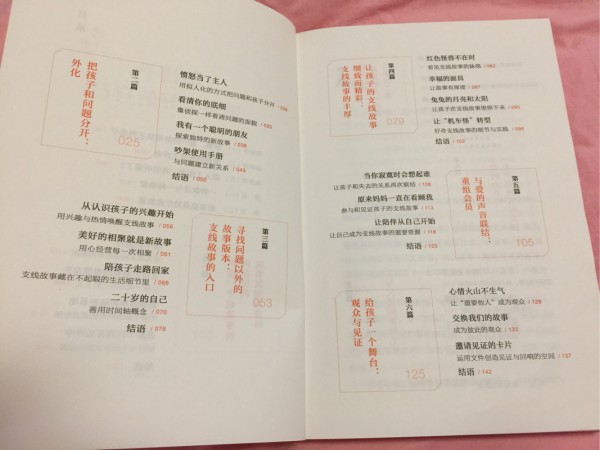 第二篇
把孩子和问题分开：
外化
025
愤怒当了主人
用拟人化的方式把问题和孩子分开
看清你的底细
像侦探一样看清问题的面貌
我有一个聪明的朋友
探索独特的新故事 / 038
吵架使用手册
与问题建立新关系 / 043
结语 / 050
从认识孩子的兴趣开始
用兴趣与热情唤醒支线故事 / 056
美好的相聚就是新故事
用心经营每一次相聚 / 061
陪孩子走路回家
支线故事藏在不起眼的生活细节里 / 066
二十岁的自己
善用时间轴概念 / 070
结语 / 076
第三篇
寻找问题以外的
故事版本：
支线故事的入口
053
第四篇
让孩子的支线故事
细致而精彩：
支线故事的丰厚
079
红色怪兽不在时
看见支线故事的脉络 / 082
幸福的面
让故事有厚度 / 087
兔兔的月亮和太阳
让孩子的支线故事
让“机车怪”转型
好奇支线故事的细节与实践 / 096
结语 / 102
当你寂寞时会想起谁
让孩子和失去的关系再次联结 / 108
原来妈妈一直在看顾我
参与和见证孩子的支线故事 / 113
让陪伴从自己开始
让自己成为支线故事的重要资源 / 118
结语
第五篇
与爱的声音联结：
重组会员
105
第六篇
给孩子一个舞台：
观众与见证
125
心情火山不生气
让“重要他人”成为观众 / 128
交换我们的故事
成为彼此的观众 / 132
邀请见证的卡片
运用文件创造见证与回响的空间 / 137
结语 / 142